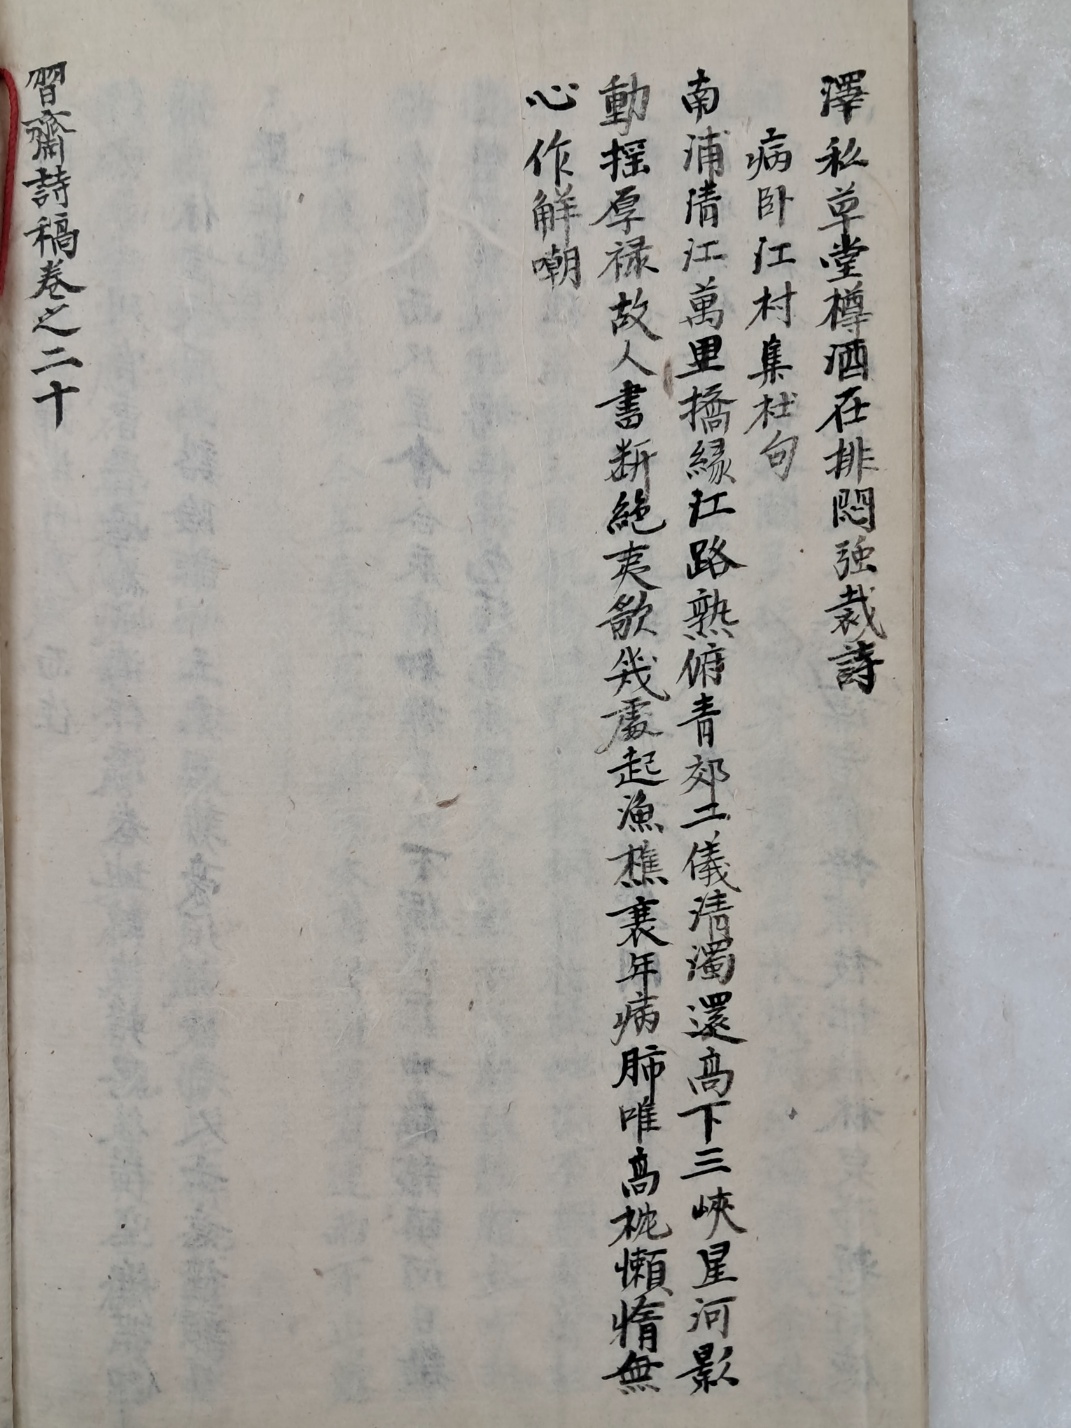 澤私草堂樽酒在排悶強裁詩
病卧江村集杜句
南浦清江萬里橋緣江路熟俯青郊二儀清濁還高下三峽星河影
動搖厚祿故人書断絶夷歌幾處起漁樵衰年病肺唯高枕懶惰無
心作解嘲
習齋詩稿卷之二十